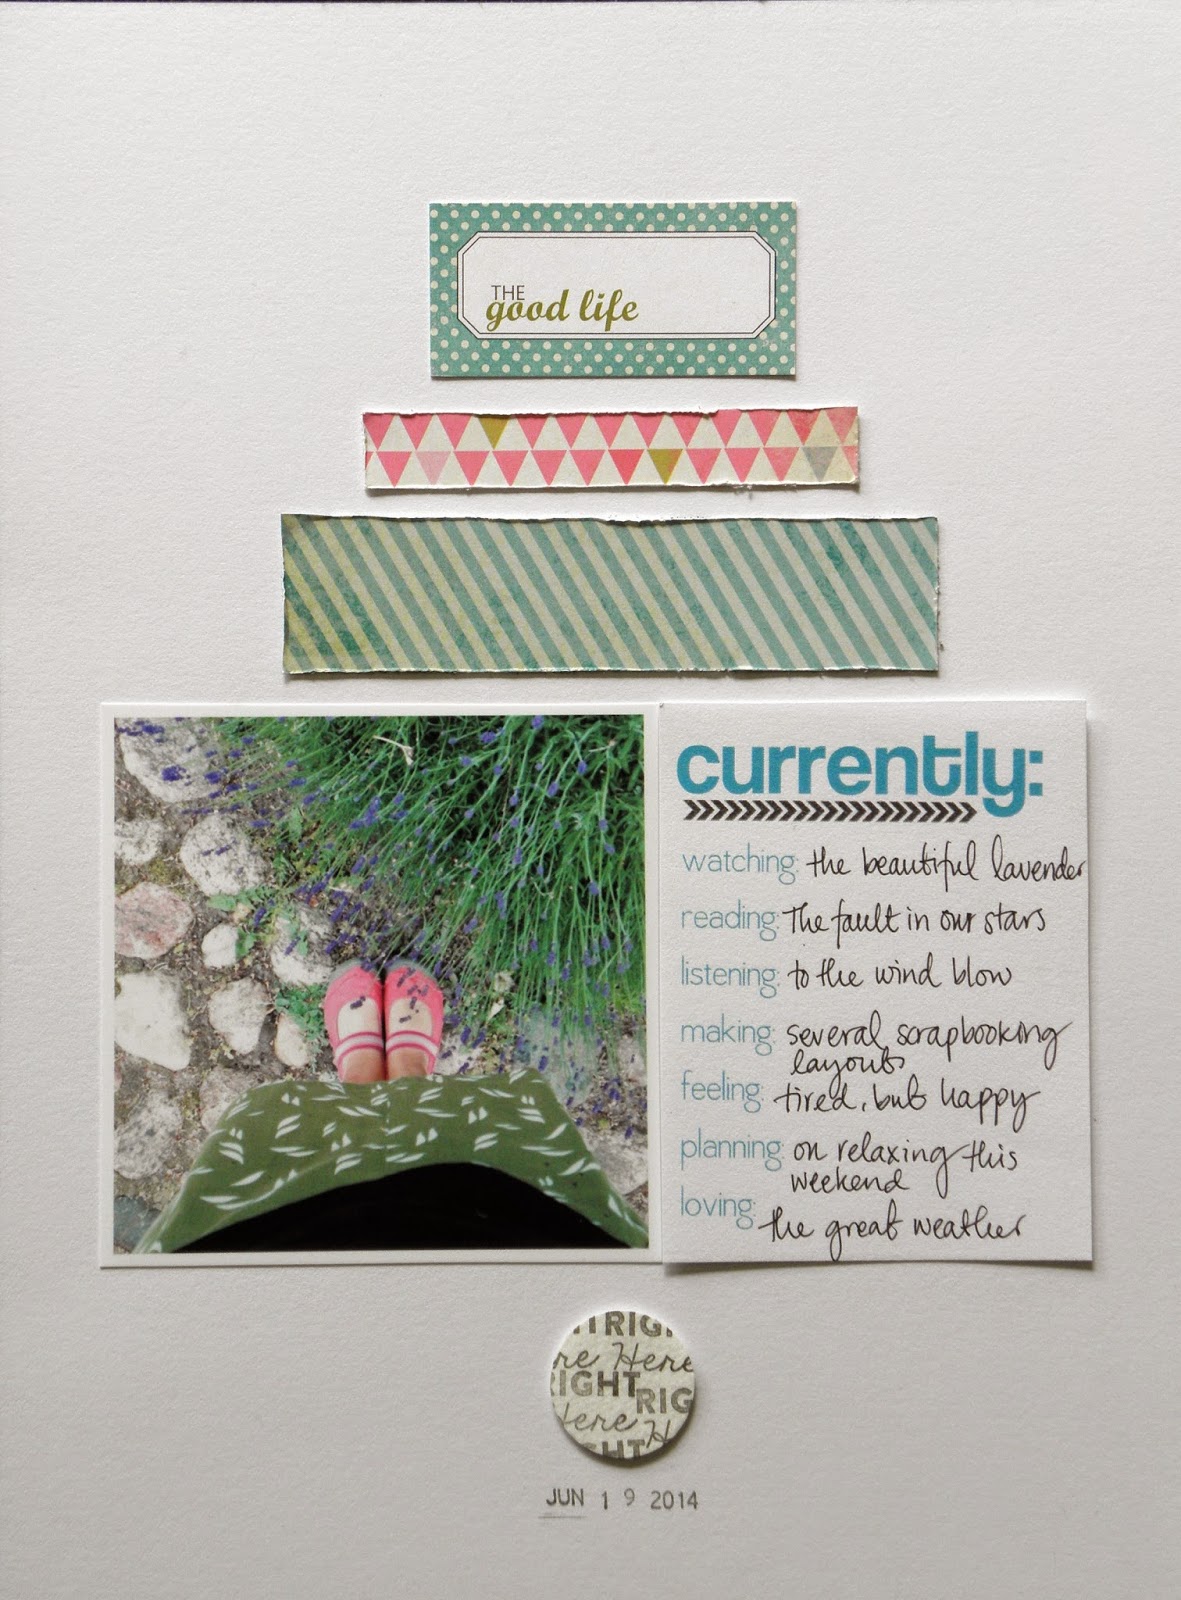 THE
good life
currently:
watching: the beautiful lavender
reading: The fault in our stars
listening: to the wind blow
making: several scrapbooking
layouts
feeling: tired, but happy
planning: on relaxing this
weekend
loving: the great weather
RIGHT
Here Here
RIGHT RIGHT
Here Here
RIGHT
JUN 19 2014